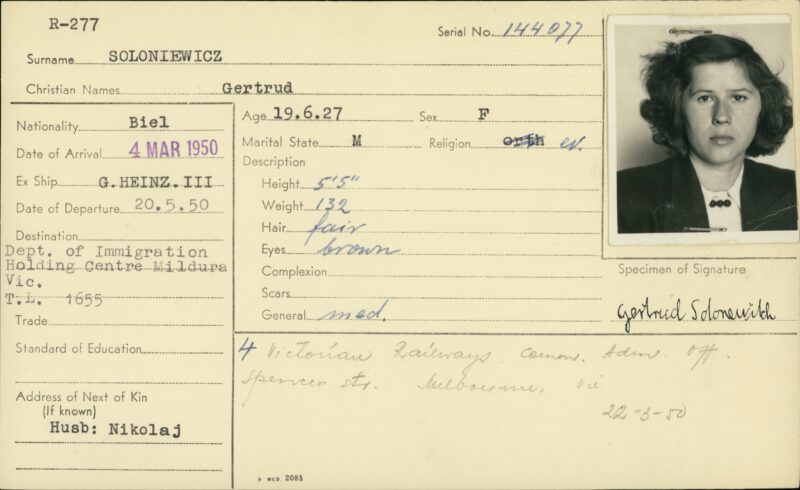 R-277
Serial No. 144077
Surname SOLONIEWICZ
Christian Names Gertrud
Nationality Biel
Date of Arrival 4 MAR 1950
Ex Ship G.HEINZ.III
Date of Departure 20.5.50
Destination
Dept. of Immigration
Holding Centre Mildura
Vic.
T.L. 1655
Trade
Standard of Education
Address of Next of Kin
(If known)
Husb: Nikolaj
Age 19.6.27 Sex F
Marital State M Religion orth ev.
Description
Height 5'5"
Weight 132
Hair fair
Eyes brown
Complexion
Scars
General med.
Specimen of Signature
Gertrud Solonewitch
4 Victorian Railways Comm. Adm. Off.
Spencer Str. Melbourne, Vic
22-3-50
S MCD 2085